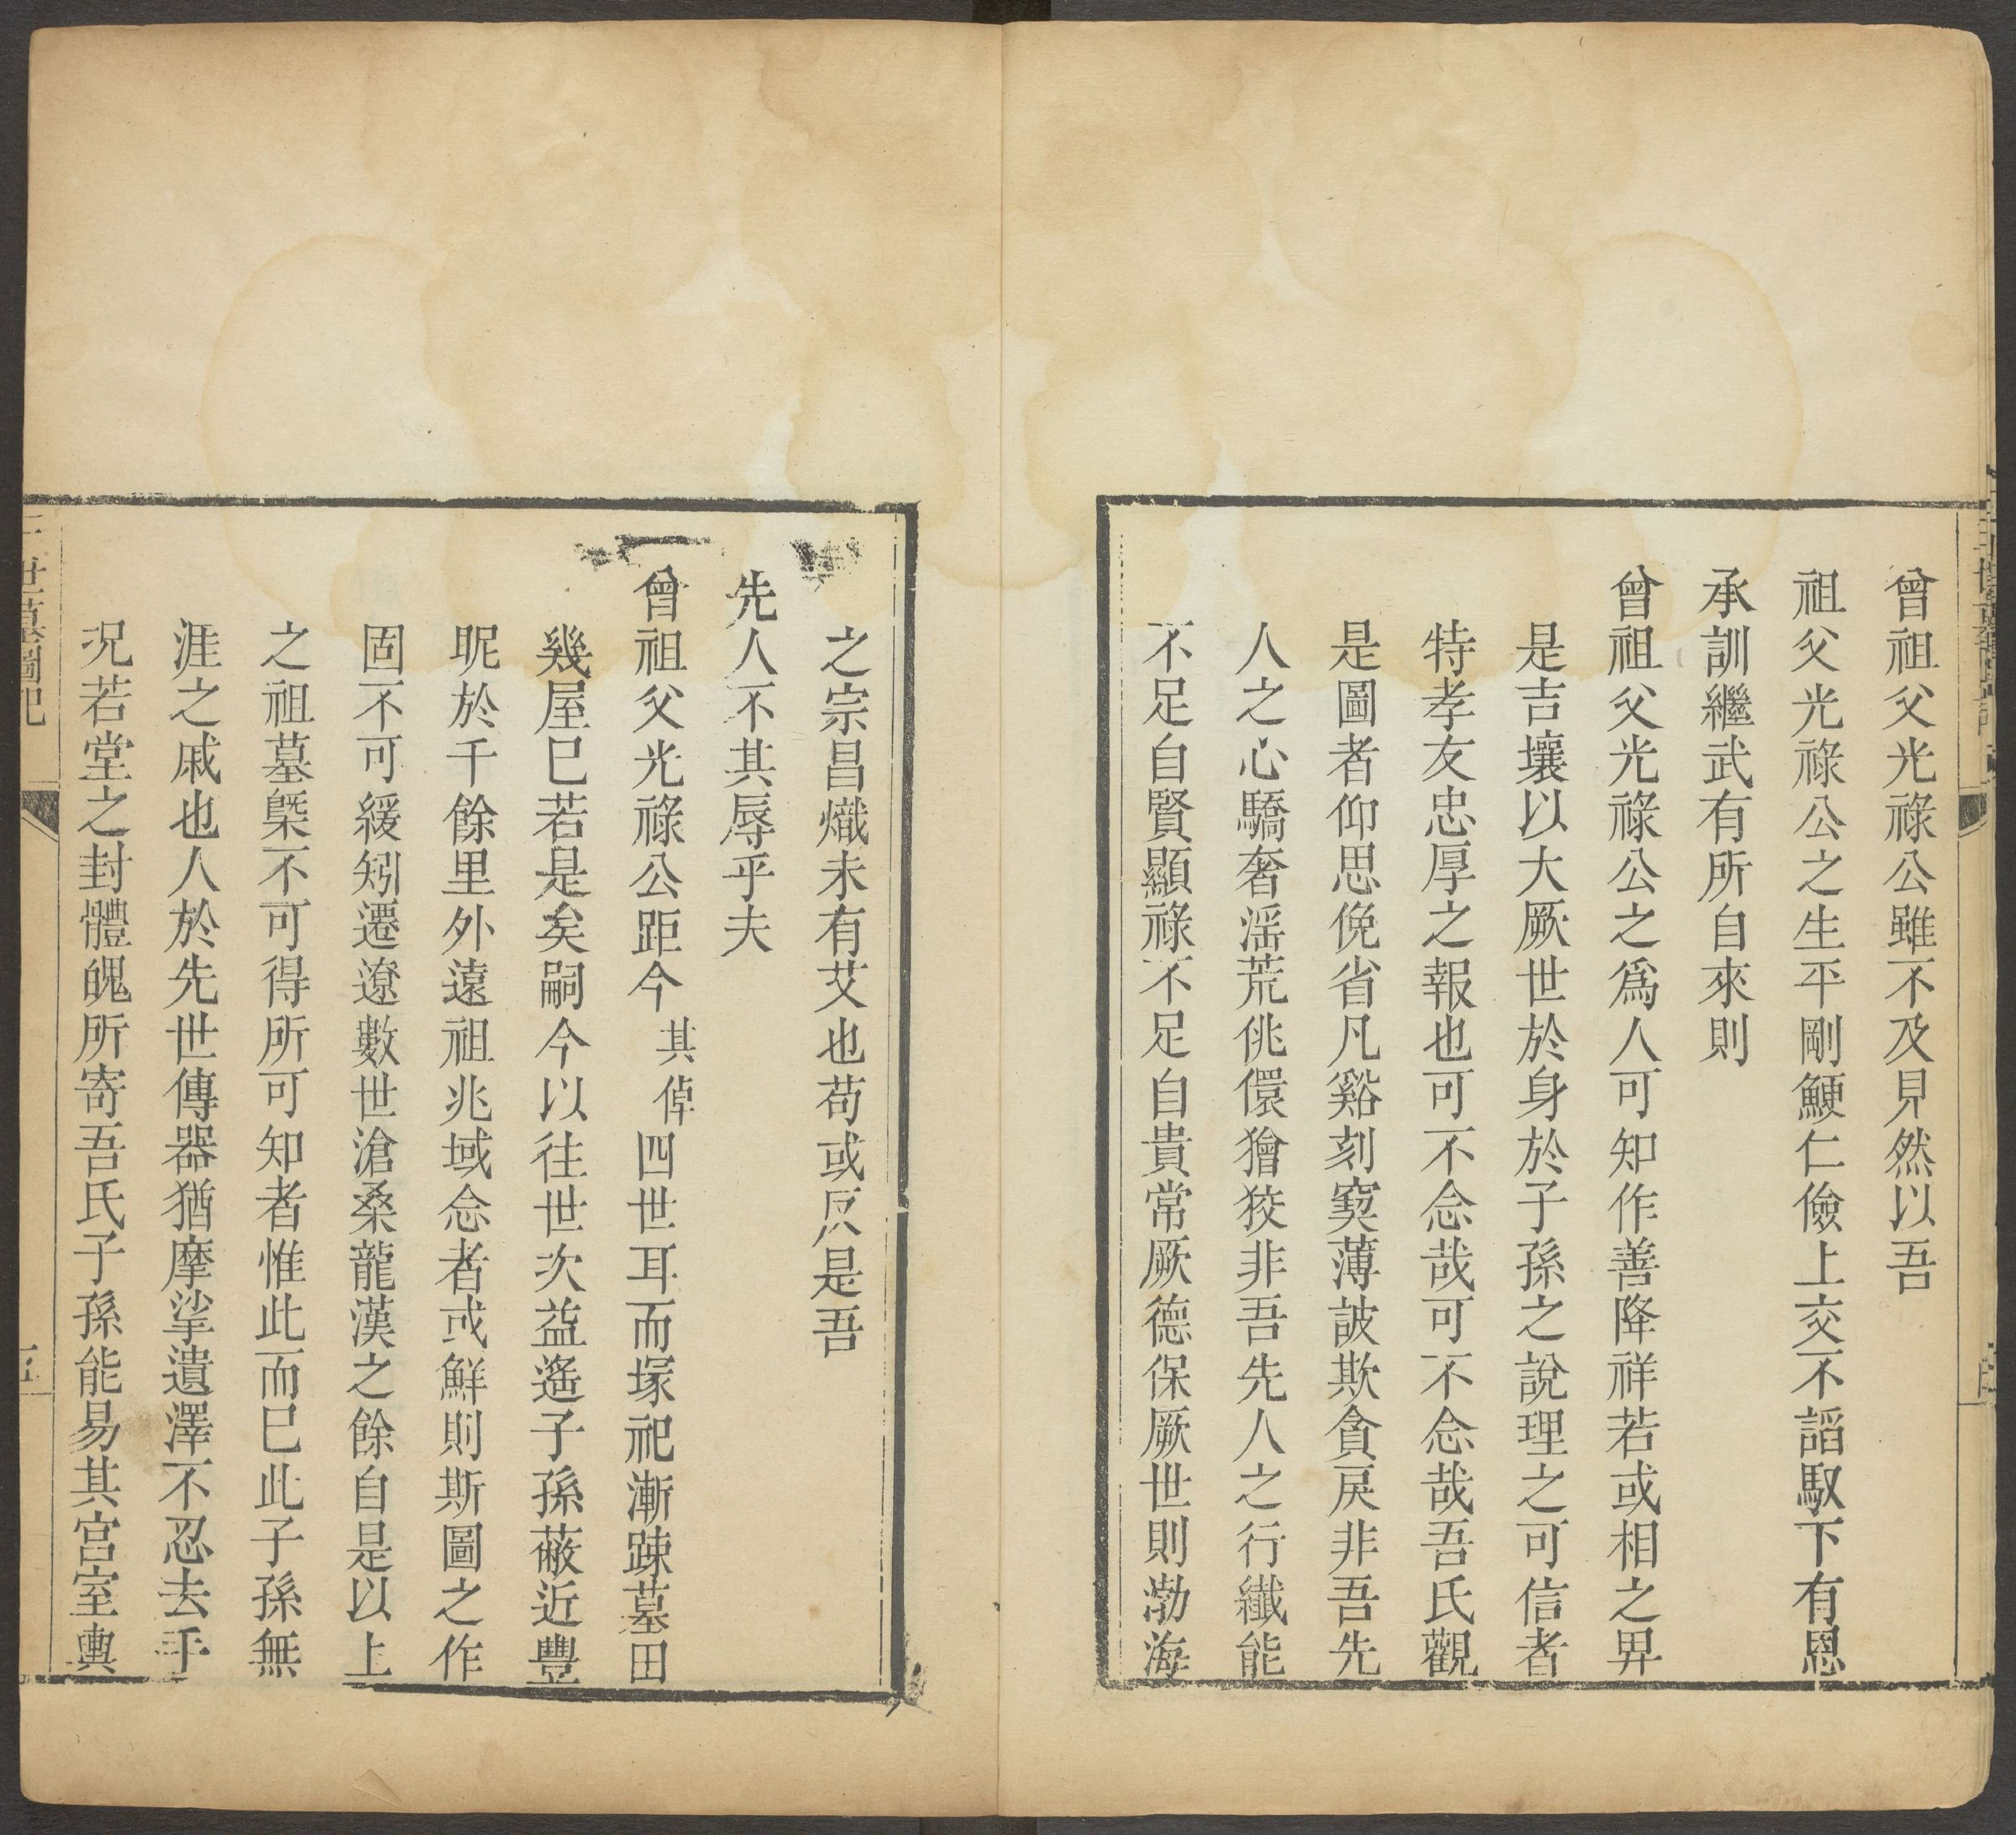 曾祖父光祿公雖不及見然以吾
祖父光祿公之生平剛鯁仁儉上交不謟馭下有恩
承訓繼武有所自來則
曾祖父光祿公之爲人可知作善降祥若或相之畀
是吉壤以大厥世於身於子孫之說理之可信者
特孝友忠厚之報也可不念哉可不念哉吾氏觀
是圖者仰思俛省凡谿刻窽薄詖欺貪戾非吾先
人之心驕奢滛荒佻儇獪狡非吾先人之行纎能
不足自賢顯祿不足自貴常厥德保厥世則渤海
之宗昌熾未有艾也苟或反是吾
先人不其辱乎夫
曾祖父光祿公距今其倬四世耳而塚祀漸踈墓田
幾屋巳若是矣嗣今以往世次益遙子孫蔽近豐
昵於千餘里外遠祖兆域念者或鮮則斯圖之作
固不可緩矧遷遼數世滄桑龍漢之餘自是以上
之祖墓槩不可得所可知者惟此而巳此子孫無
涯之戚也人於先世傳器猶摩挲遺澤不忍去手
况若堂之封體魄所寄吾氏子孫能易其宮室輿
三世墓圖記
五